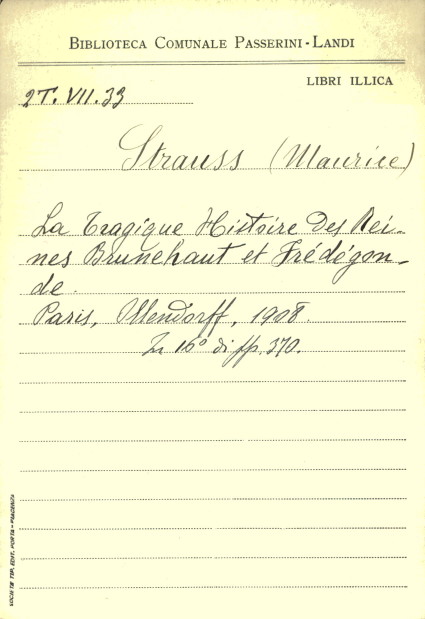 BIBLIOTECA COMUNALE PASSERINI-LANDI
LIBRI ILLICA
2T. VII. 33
Strauss (Maurice)
La Tragique Histoire Des Rei-
nes Brunehaut et Frédégon-
de.
Paris, Ollendorff, 1908.
In 16° di pp. 370.
SOCIETÀ TIP. EDIT. PORTA - PIACENZA